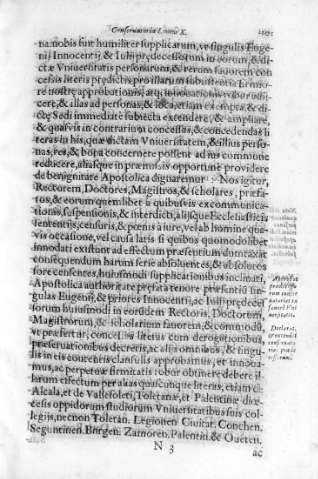 Conseruatoria Leonis X.
na. nobis fuit humiliter supplicatum, vt singulis Euge-
nij Innocentij, & Iulij prędecessorum in eorum, & di-
ctæ Vniuersitatis personarum, & rerum fauorem con
cessis literis prędictis pro illarum subsistentia firmio-
re nostrę approbationis, atq; innouationis robur adij-
cere, & illas ad personas, & loca, etiam exempta, & di-
ctę Sedi immediatè subiecta extendere, & ampliare,
& quasvis in contrarium concessas, & concedendas li
teras in his, quæ dictam Vniuersitatem, & illius perso-
nas, res, & bona concernere possent ad ius commune
reducere, aliasque in præmissis opportunè prouidere
de benignitate Apostolica dignaremur: Nos igitur,
Rectorem, Doctores, Magistros, & scholares, præfa-
tos, & eorum quemlibet à quibusvis excommunica-
tionis, suspensionis, & interdicti, alijsque Ecclesiasticis
sententijs, censuris, & pœnis à iure, vel ab homine qua-
vis occasione, vel causa latis si quibus quomodolibet
innodati existunt ad effectum præsentium dumtaxat
consequendum harum serie absoluentes, & absolutos
fore censentes, huiusmodi supplicationibus inclinati,
Apostolica authoritate pręfata tenore præsentiũ sin-
gulas Eugenij, & priores Innocentij, ac Iulij prędeces
sorum huiusmodi in eorũdem Rectoris, Doctorum,
Magistrorum, & scholarium fauorem, & commodũ,
vt præfertur, concessas literas cum derogationibus,
præseruationibus decretis, ac alijs omnibus, & singu-
lis in eis contentis clausulis approbamus, et innoua-
mus, ac perpetuæ firmitatis robur obtinere debere il-
larum effectum per alias quascunque literas, etiam
Alcala, et de Valleoleti, Toletanæ, et Palentinæ diœ-
cesis oppidorum studiorum Vniuersitatibus suis col-
legijs, necnon Toletan. Legionen. Ciuitat. Conchen.
Seguntinen. Burgen. Zamoren. Palentin. & Oueten.
N 3
ac